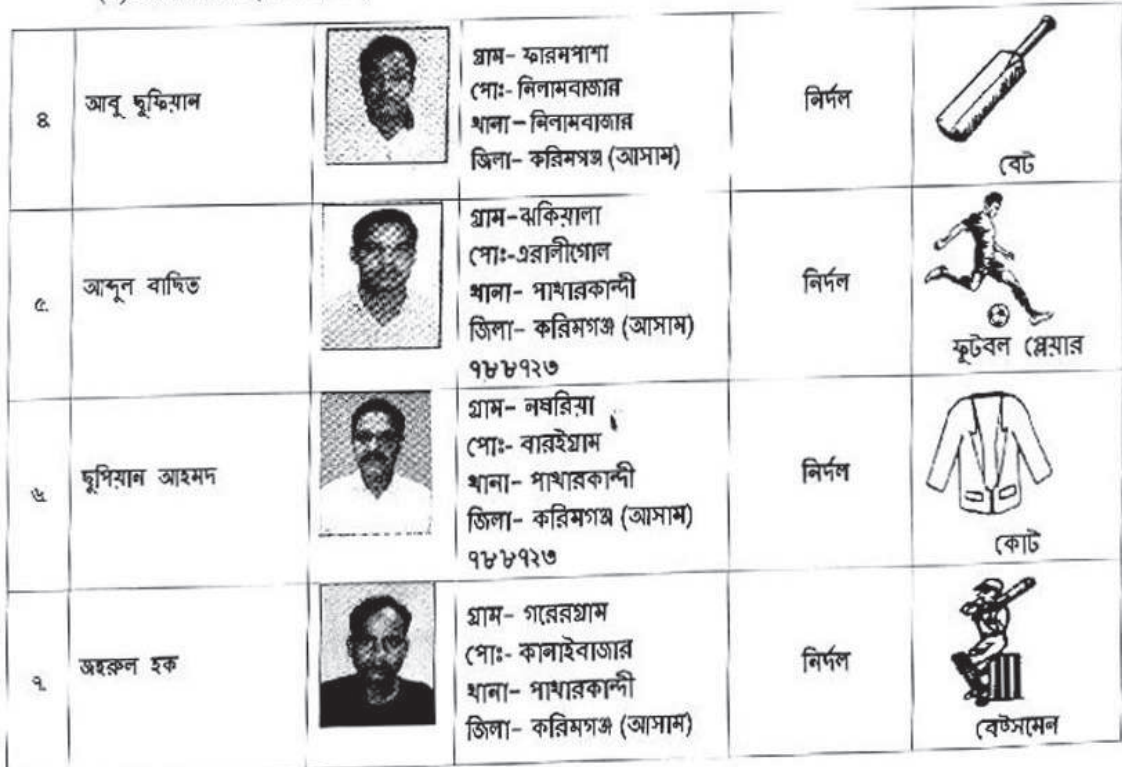 ৪
আবু ছুফিয়ান
গ্রাম- ফারমপাশা
পো:- নিলামবাজার
থানা- নিলামবাজার
জিলা- করিমগঞ্জ (আসাম)
নির্দল
বেট
৫.
আব্দুল বাছিত
গ্রাম-ঝকিয়ালা
পো:-এরালীগোল
থানা- পাথারকান্দী
জিলা- করিমগঞ্জ (আসাম)
৭৮৮৭২৩
নির্দল
ফূটবল প্লেয়ার
৬
ছুপিয়ান আহমদ
গ্রাম- নষরিয়া
পো:- বারইগ্রাম
থানা- পাথারকান্দী
জিলা- করিমগঞ্জ (আসাম)
৭৮৮৭২৩
নির্দল
কোট
৭
জহরুল হক
গ্রাম- গরেরগ্রাম
পো:- কানাইবাজার
থানা- পাথারকান্দী
জিলা- করিমগঞ্জ (আসাম)
নির্দল
বেটসমেন